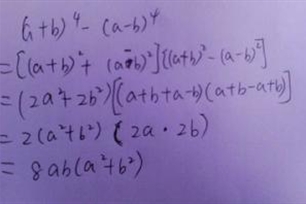 (a+b)⁴-(a-b)⁴
=[(a+b)²+(a-b)²][(a+b)²-(a-b)²]
=(2a²+2b²)[(a+b+a-b)(a+b-a+b)]
=2(a²+b²)(2a·2b)
=8ab(a²+b²)